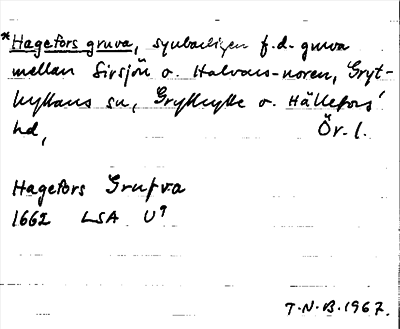 *Hagefors gruva, synbarligen f.d. gruva
mellan Sirsjön o. Halvars-noren, Gryt-
hyttans sn, Grythytte o. Hällefors'
hd, Ör. l.
Hagefors Grufva
1662 LSA U9
T.N.B. 1967.